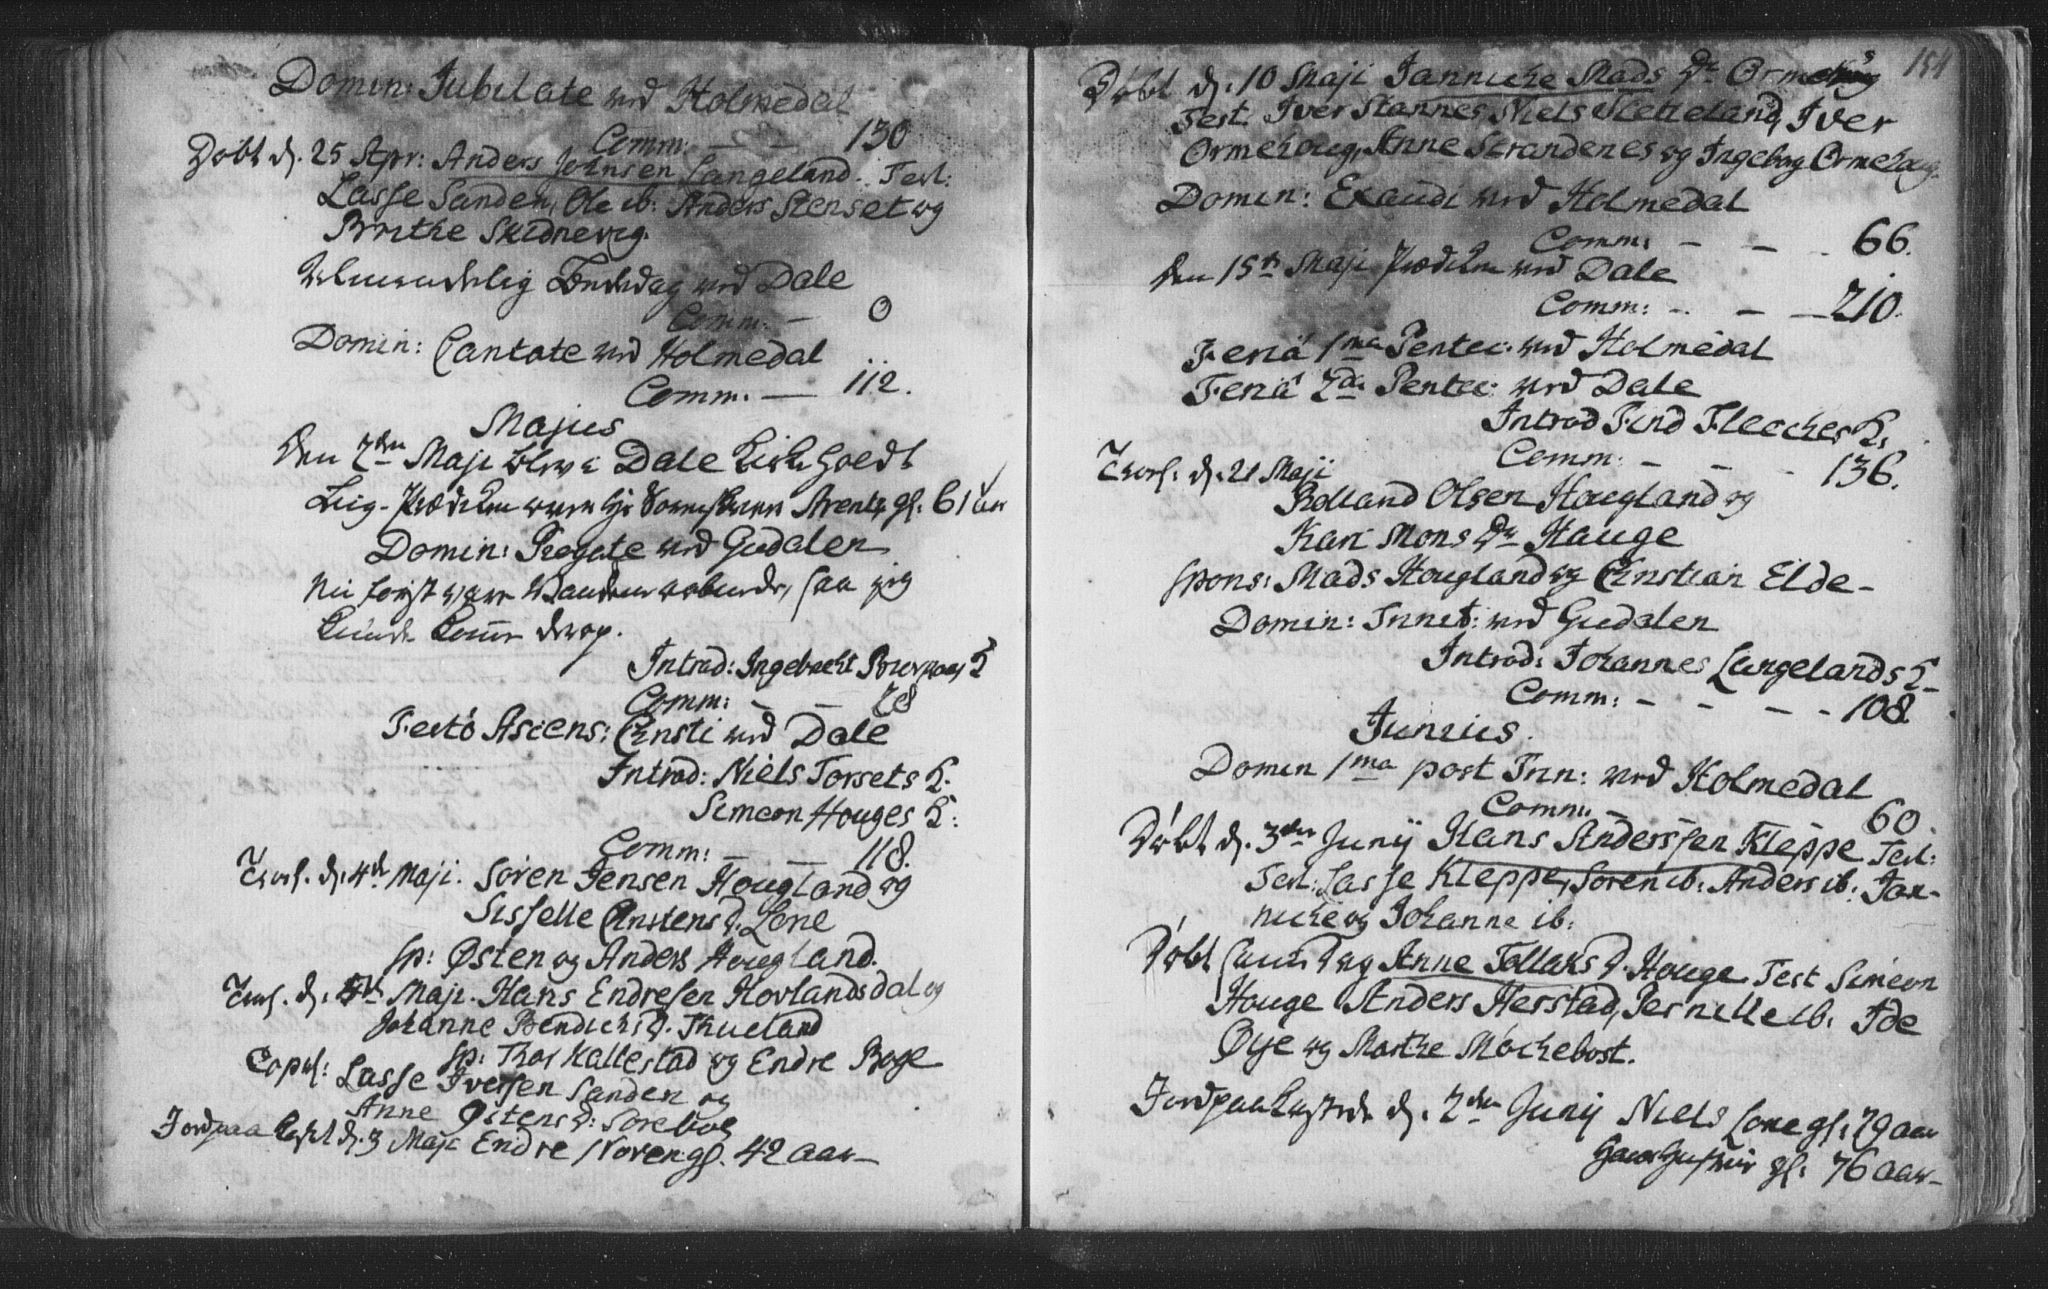 Domin: Jubilate ved Holmedal
Comm: — — 130
Døbt d. 25 Apr: Anders Johnsen Langeland. Test:
Lasse Sanden, Ole ib: Anders Stenset og
Brithe Skidneveg.
Almindelig Bededag ved Dale
Comm: — 0
Domin: Cantate ved Holmedal
Comm. — 112.
Majus
Den 2den Maji blev i Dale Kirke holdt
Liig-Prædiken over Hr Arentz gl. 61 aar
Domin: Rogate ved Gudalen
Nu først vare Vandene aabnede, saa jeg
kunde komme derop.
Introd: Ingebrecht K
Comm: — — 28
Festo Ascens: Christi ved Dale
Introd: Niels Torsets K.
Simeon Houges K:
Comm: — — 118.
Trol. d. 4de Maji. Søren Jensen Hougland og
Sisselle Christens D. Lone
sp: Østen og Anders Hougland.
Trol. d. Maji. Hans Endresen Hovlandsdal og
Johanne Bendichs D. Thueland
sp: Thor Kallestad og Endre Boge
Copul: Lasse Iversen Sanden og
Anne Østens D: Sørebøe
Jordpaakast d. 3 Maji Endre Noren gl. 42 aar —
151
Døbt d. 10 Maji Janniche Mads Dr Ormehoug
Test. Iver Stannes, Niels Sletteland, Iver
Ormehoug, Anne Strandenes og Ingeborg Ormehoug.
Domin: Exaudi ved Holmedal
Comm: — — — 66.
Den 15de Maji Prædiken ved Dale
Comm: — — — 210.
Feriâ 1ma Pentec: ved Holmedal
Feriâ 2da Pentec: ved Dale
Introd Find Flecches K.
Comm: — — — 136.
Trol. d. 21 Maji
Rolland Olsen Hougland og
Kari Mons Dr Hauge
spons: Mads Hougland og Christian Elde —
Domin: Trinit: ved Gudalen
Introd: Johannes Langelands K —
Comm: — — — — 108.
Junius.
Domin 1ma post Trin: ved Holmedal
Comm: — 60.
Døbt d. 3die Junij Hans Anderssen Kleppe Test:
Test: Lasse Kleppe, Søren ib: Anders ib: Jan-
niche og Johanne ib:
Døbt samme Dag Anne Tollaks D. Houge Test Simeon
Houge Anders Herstad, Pernille ib: Ide
Øye og Marthe Møchebost.
Jordpaakastede d. 2den Junij Niels Lone gl: 79 aar
Hans Hustrue gl: 76 aar —